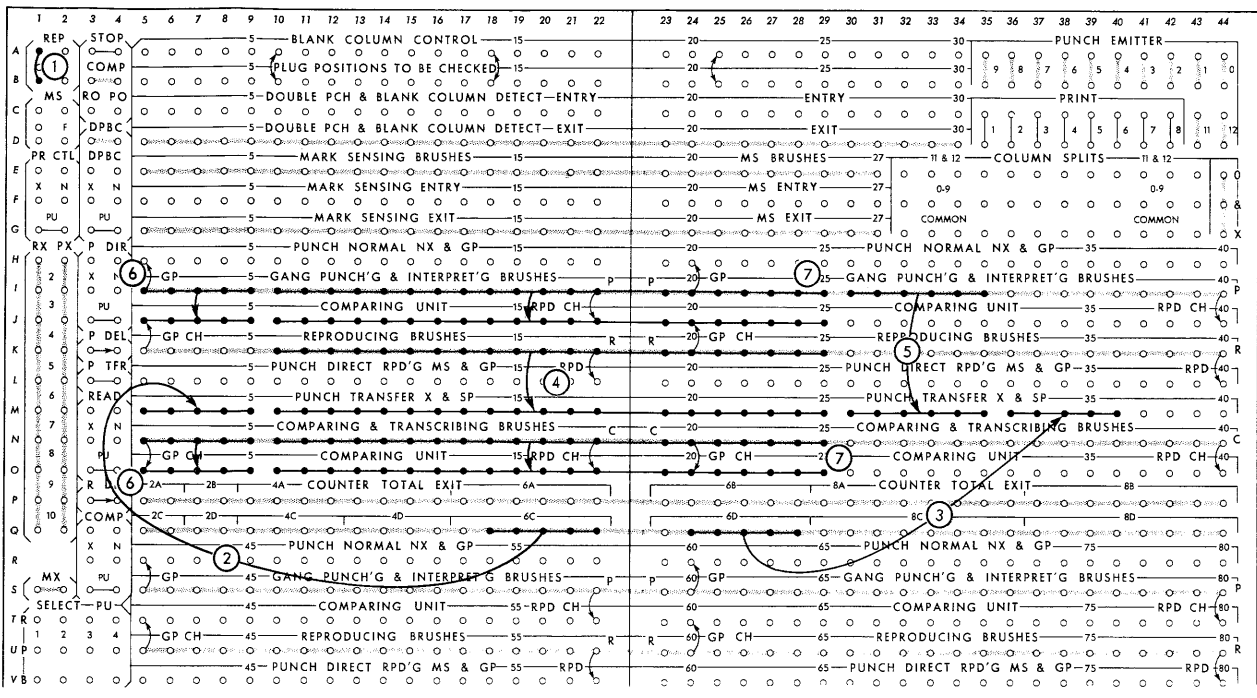 1 2 3 4 5 6 7 8 9 10 11 12 13 14 15 16 17 18 19 20 21 22 23 24 25 26 27 28 29 30 31 32 33 34 35 36 37 38 39 40 41 42 43 44
REP STOP 5 BLANK COLUMN CONTROL 15 20 25 30 PUNCH EMITTER
A
1 COMP 5 PLUG POSITIONS TO BE CHECKED 15 20 25 30 9 8 7 6 5 4 3 2 1 0
B
MS RO PO 5 DOUBLE PCH & BLANK COLUMN DETECT-ENTRY 20 ENTRY 30 PRINT
C
F DPBC 5 DOUBLE PCH & BLANK COLUMN DETECT-EXIT 20 EXIT 30 1 2 3 4 5 6 7 8 11 12
D
PR CTL DPBC 5 MARK SENSING BRUSHES 15 20 MS BRUSHES 27 11 & 12 COLUMN SPLITS 11 & 12
E O
X N X N 5 MARK SENSING ENTRY 15 20 MS ENTRY 27 0-9 0-9
F &
PU PU 5 MARK SENSING EXIT 15 20 MS EXIT 27 COMMON COMMON
G X
RX PX P DIR 5 PUNCH NORMAL NX & GP 15 20 25 PUNCH NORMAL NX & GP 35 40
H
2 X N 6 GP 5 GANG PUNCH'G & INTERPRET'G BRUSHES P P 20 GP 7 25 GANG PUNCH'G & INTERPRET'G BRUSHES 40 P
I
3 PU 5 COMPARING UNIT 15 RPD CH 20 25 COMPARING UNIT 35 RPD CH 40
J
4 P DEL GP CH 5 REPRODUCING BRUSHES 15 R R 20 GP CH 25 REPRODUCING BRUSHES 35 40 R
K 5
5 P TFR 5 PUNCH DIRECT RPD'G MS & GP 15 RPD 20 25 PUNCH DIRECT RPD'G MS & GP 35 RPD 40
L 4
6 READ 5 PUNCH TRANSFER X & SP 15 20 25 PUNCH TRANSFER X & SP 35 40
M
7 X N 5 COMPARING & TRANSCRIBING BRUSHES C C 20 25 COMPARING & TRANSCRIBING BRUSHES 40 C
N
8 PU GP CH 5 COMPARING UNIT 15 RPD CH 20 GP CH 7 COMPARING UNIT 35 RPD CH 40
O
9 6 2A 2B 4A COUNTER TOTAL EXIT 6A 6B 8A COUNTER TOTAL EXIT 8B
P
10 COMP 2C 2D 4C 4D 6C 6D 8C 3 8D
Q
X N 2 45 PUNCH NORMAL NX & GP 55 60 65 PUNCH NORMAL NX & GP 75 80
R
MX PU GP 45 GANG PUNCH'G & INTERPRET'G BRUSHES P P 60 GP 65 GANG PUNCH'G & INTERPRET'G BRUSHES 80 P
S
SELECT-PU 45 COMPARING UNIT 55 RPD CH 60 65 COMPARING UNIT 75 RPD CH 80
T R
1 2 3 4 GP CH 45 REPRODUCING BRUSHES 55 R R 60 GP CH 65 REPRODUCING BRUSHES 75 80 R
U P
45 PUNCH DIRECT RPD'G MS & GP 55 RPD 60 65 PUNCH DIRECT RPD'G MS & GP 75 RPD 80
V B